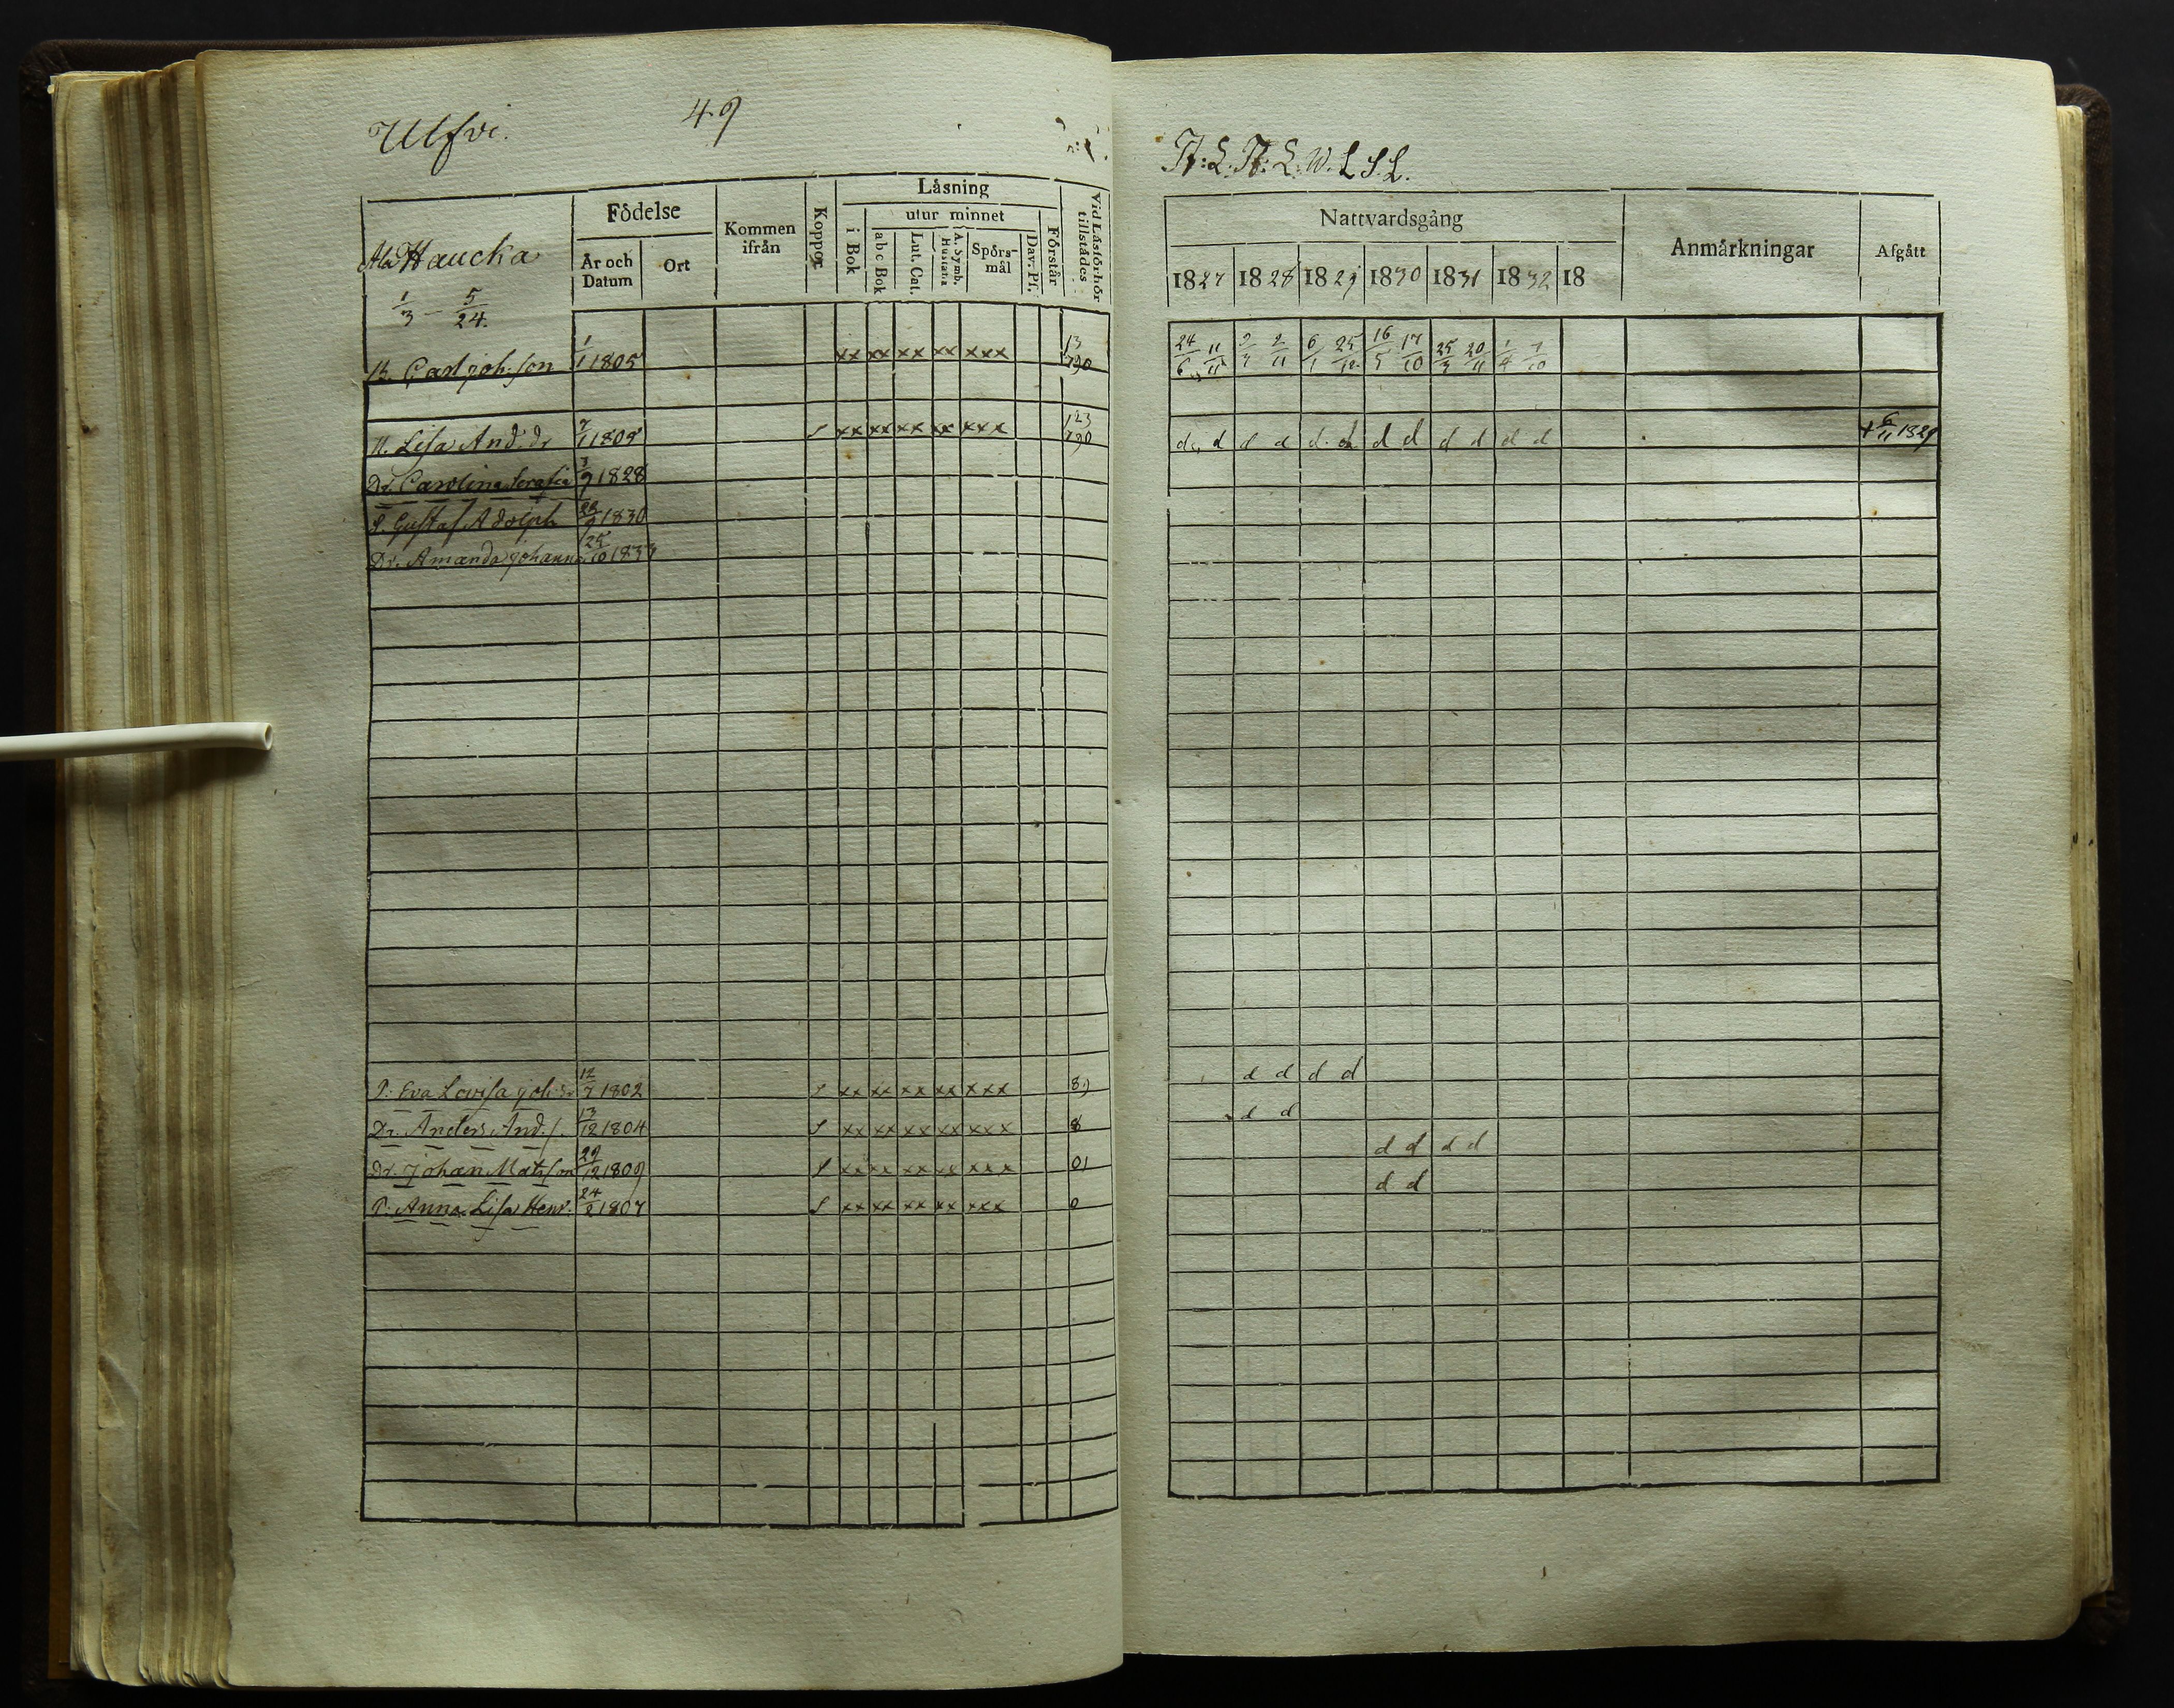 Ulfvi. 49
Ala Haucka
1/3 - 5/24.
Födelse
År och Datum
Ort
Kommen ifrån
Koppor
Läsning
i Bok
utur minnet
a b c Bok
Lut. Cat.
A. Symb. Hustafla
Spörsmål
Dav. Ps.
Förstår
Vid Läsförhör tillstädes
B. Carl Joh:son 1/1 1805 xx xx xx xx xxx 13 790
H. Lisa And.dr 7/1 1809 S xx xx xx xx xxx 123 790
Dr. Carolina Serafia 3/9 1828
S. Gustaf Adolph 1830
Dr. Amanda Johanna 25/10 1833
P: Eva Lovisa Joh:dr 12/7 1802 S xx xx xx xx xxx 89
Dr. Anders And.s. 13/12 1804 S xx xx xx xx xxx 8
Dr. Johan Matsson 29/12 1809 S xx xx xx xx xxx 01
P: Anna Lisa Henr: 24/2 1807 S xx xx xx xx xxx 0
N: L. N: L. W. L S. L.
Nattvardsgång
Anmärkningar
Afgått
1827 1828 1829 1830 1831 1832 18
24/6 11/11 2/11 6/1 25/12 16/5 17/10 25/3 20/11 1/4 7/10
d d d d d d d d d d d d + 6/11 1829
d d d d
d d
d d d d
d d